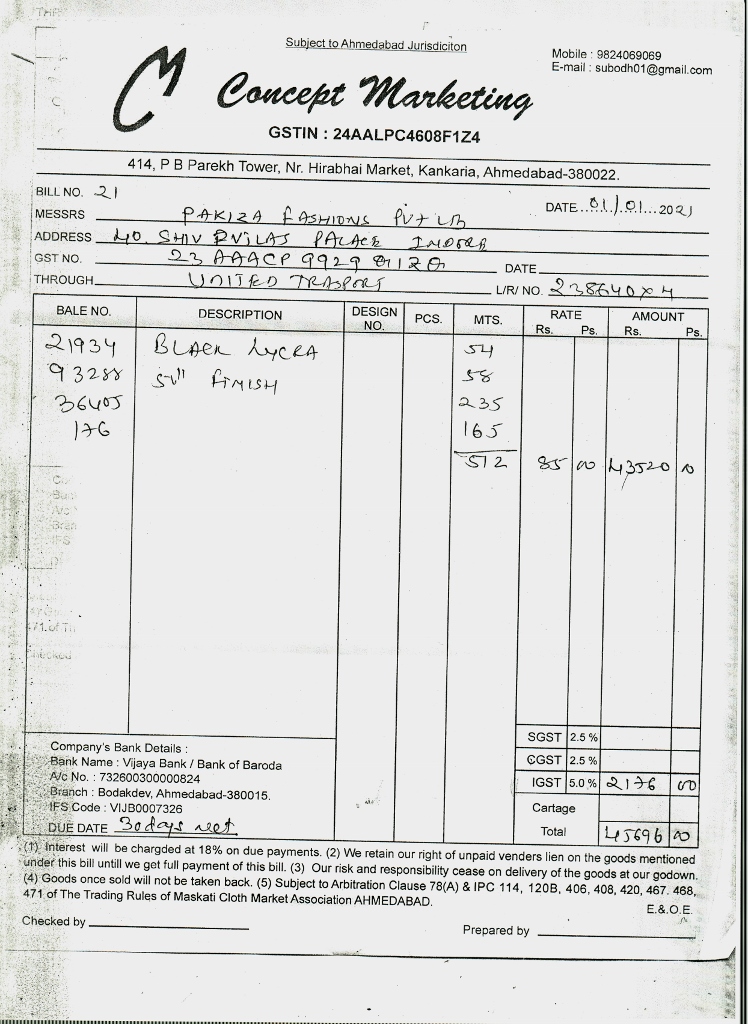 Subject to Ahmedabad Jurisdiciton
Mobile : 9824069069
E-mail : subodh01@gmail.com
CM Concept Marketing
GSTIN : 24AALPC4608F1Z4
414, P B Parekh Tower, Nr. Hirabhai Market, Kankaria, Ahmedabad-380022.
BILL NO. 21
DATE 01/01 2021
MESSRS PAKIZA FASHIONS PVT LTD
ADDRESS 40. SHIV VILAS PALACE INDORE
GST NO. 23 AAACP 9929 DATE
THROUGH UNITED TRASPORT L/R/ NO. 238640 x 4
BALE NO. DESCRIPTION DESIGN NO. PCS. MTS. RATE Rs. Ps. AMOUNT Rs. Ps.
21934 BLACK LYCRA 54
93288 54" FINISH 58
36405 235
176 165
512 85 00 43520 00
SGST 2.5 %
CGST 2.5 %
IGST 5.0 % 2176 00
Cartage
Total 45696 00
Company's Bank Details :
Bank Name : Vijaya Bank / Bank of Baroda
A/c No. : 732600300000824
Branch : Bodakdev, Ahmedabad-380015.
IFS Code : VIJB0007326
DUE DATE 30 days net
(1) Interest will be chargded at 18% on due payments. (2) We retain our right of unpaid venders lien on the goods mentioned
under this bill untill we get full payment of this bill. (3) Our risk and responsibility cease on delivery of the goods at our godown.
(4) Goods once sold will not be taken back. (5) Subject to Arbitration Clause 78(A) & IPC 114, 120B, 406, 408, 420, 467. 468,
471 of The Trading Rules of Maskati Cloth Market Association AHMEDABAD.
E.&.O.E.
Checked by
Prepared by